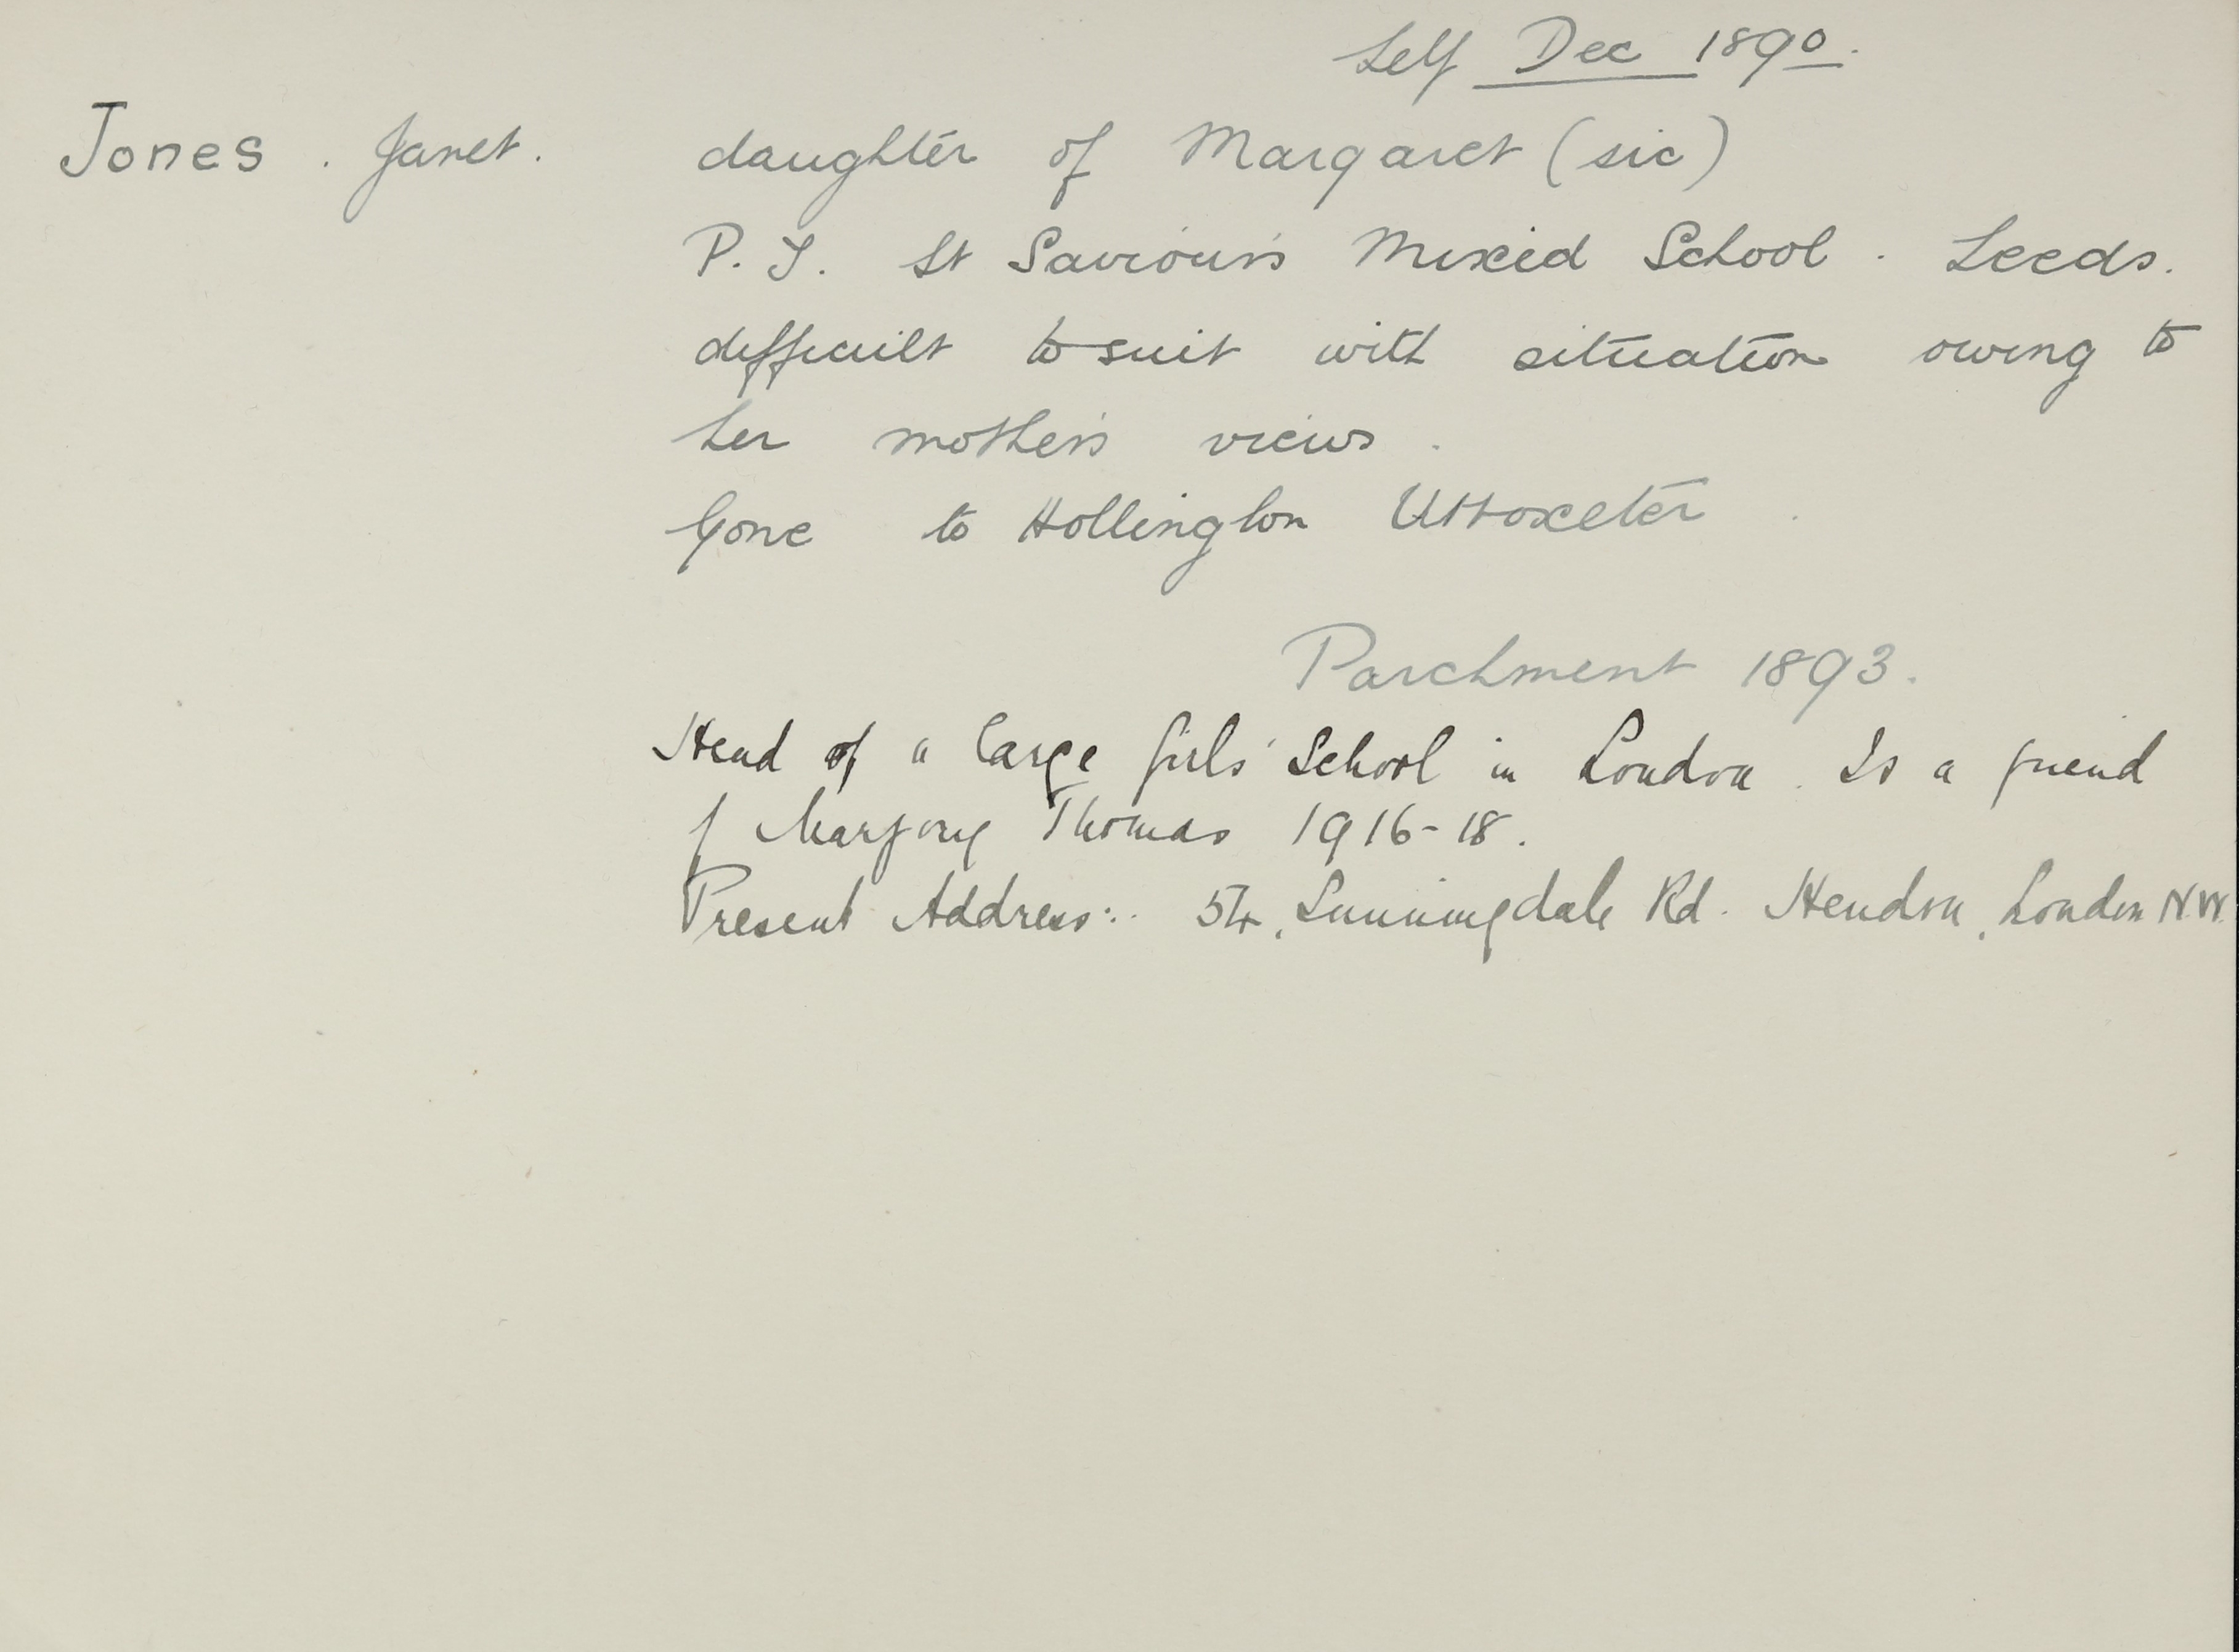 Left Dec 1890.
Jones. Janet. daughter of Margaret (sic)
P.T. St Saviour's Mixed School. Leeds.
difficult to suit with situation owing to
her mother's views.
Gone to Hollington Uttoxeter.
Parchment 1893.
Head of a large Girls' School in London. Is a friend
of Marjory Thomas 1916-18.
Present Address:. 54, Sunningdale Rd. Hendon, London N.W.